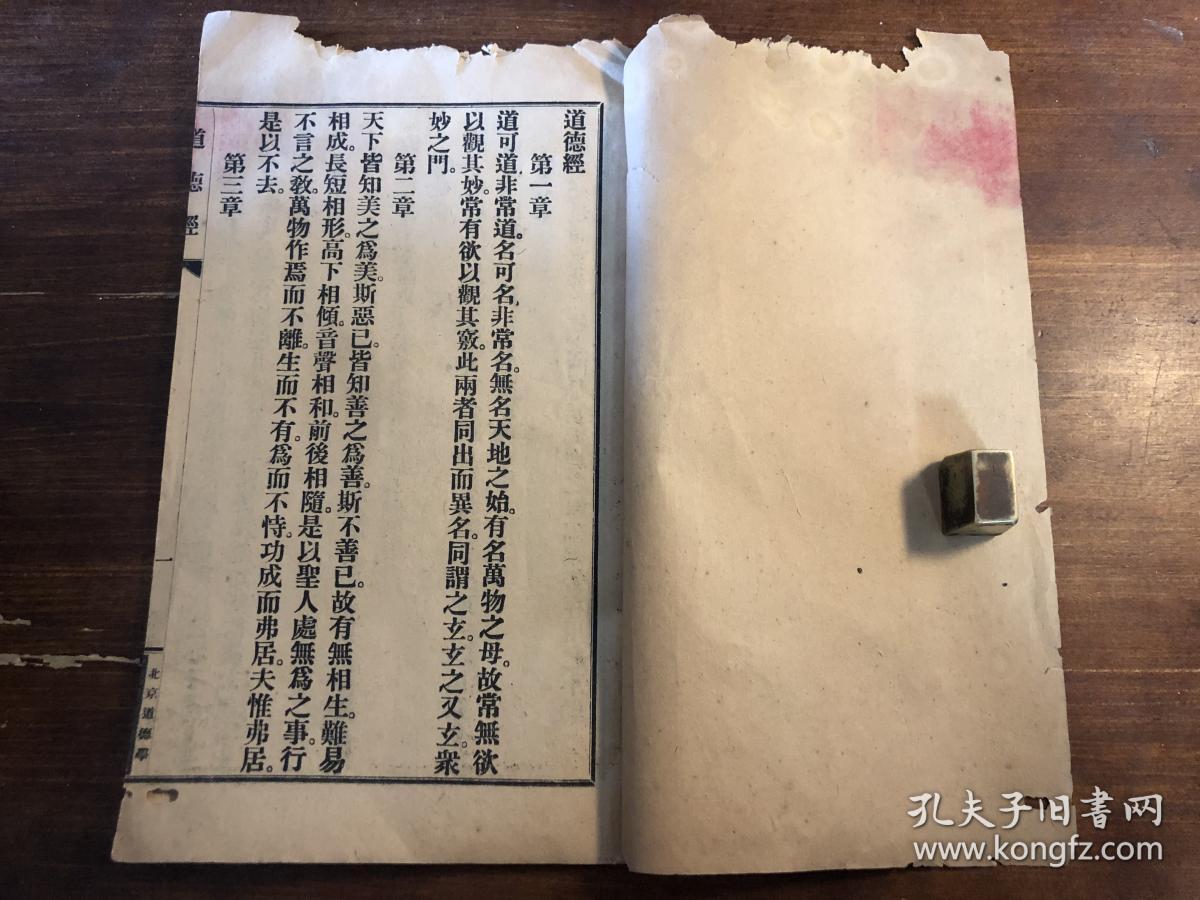 道德經
第一章
道可道,非常道。名可名,非常名。無名天地之始。有名萬物之母。故常無欲
以觀其妙。常有欲以觀其竅。此兩者同出而異名。同謂之玄。玄之又玄。衆
妙之門。
第二章
天下皆知美之爲美。斯惡已。皆知善之爲善。斯不善已。故有無相生。難易
相成。長短相形。高下相傾。音聲相和。前後相隨。是以聖人處無爲之事。行
不言之敎。萬物作焉而不離。生而不有。爲而不恃。功成而弗居。夫惟弗居。
是以不去。
第三章
道德經
一
北京道德學
孔夫子旧書网
www.kongfz.com